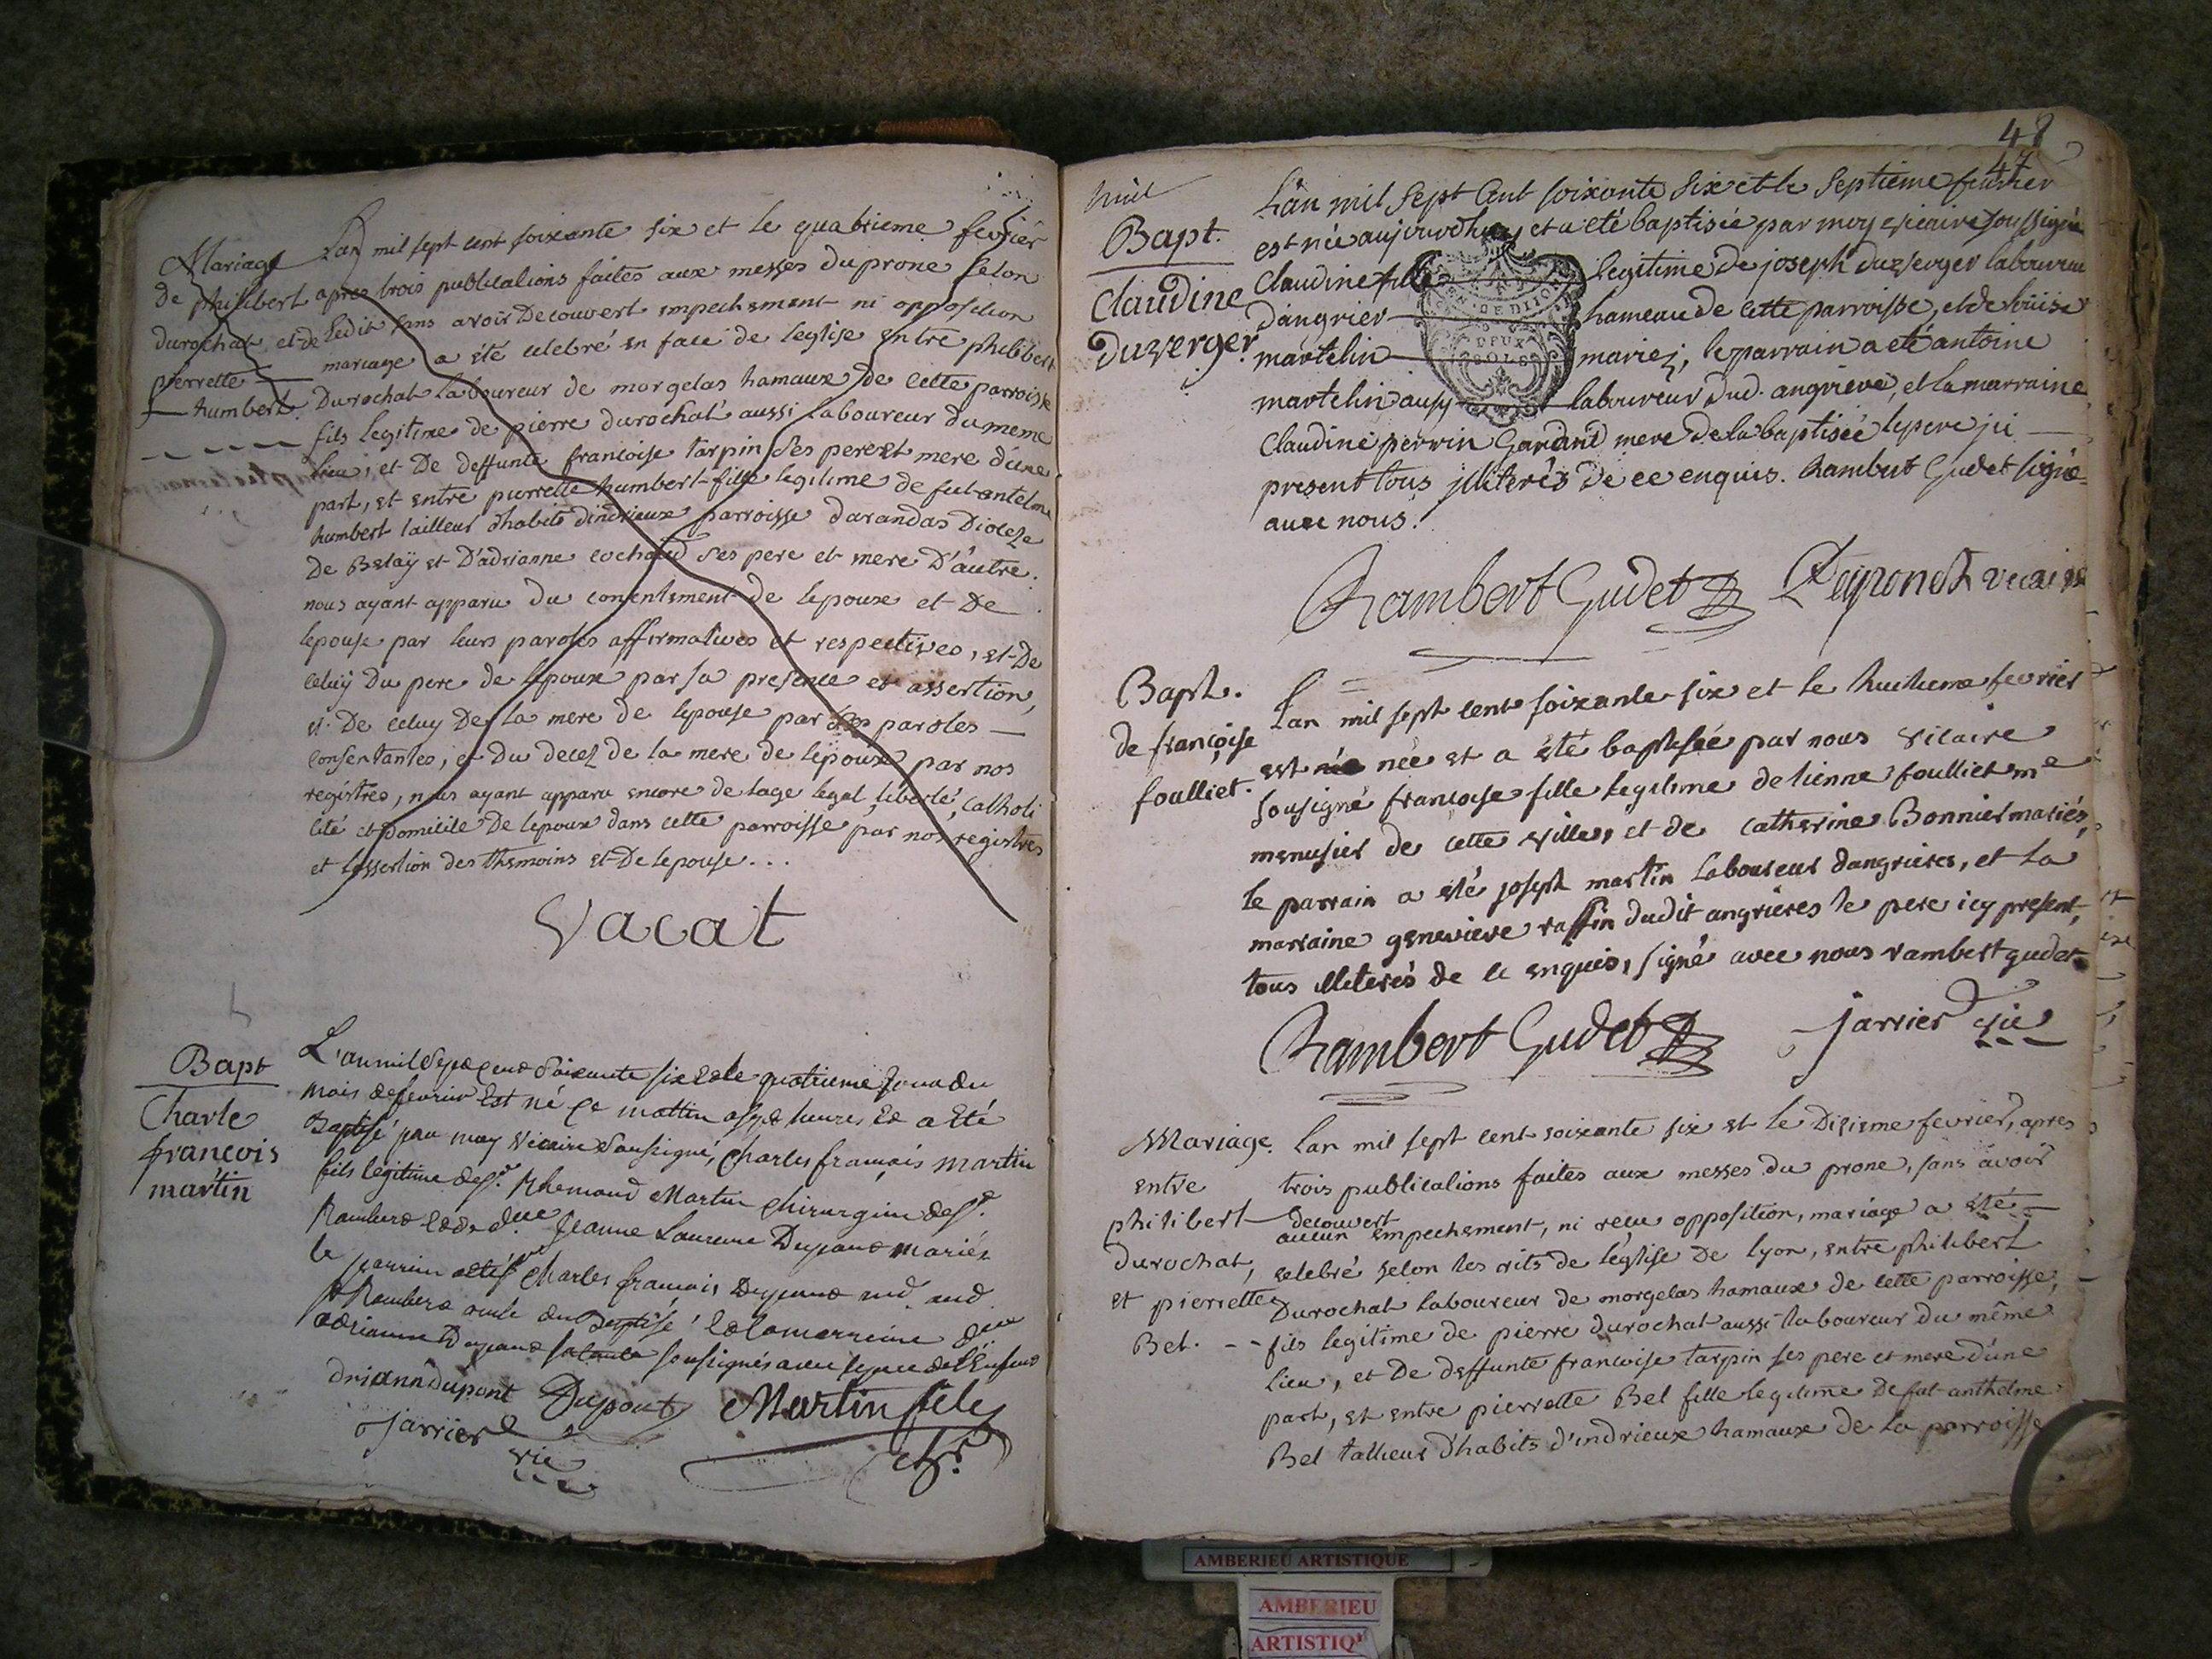 Mariage
de philibert
durochat et de
pierrette
humbert
Lan mil sept cent soixante six et le quatrieme fevrier
apres trois publications faites aux messes du prone selon
ledit sans avoir Decouvert empechement ni opposition
mariage a été celebré en face de leglise entre philibert
Durochat laboureur de morgelas hamaux de cette parroisse
fils legitime de pierre durochat aussi laboureur du meme
lieu, et De deffunte francoise tarpin ses pere et mere d'une
part, et entre pierrette humbert fille legitime de fut antelme
humbert tailleur d'habits d'indrieux parroisse darandas Dioceze
De Belaÿ et D'adrianne cochand ses pere et mere D'autre.
nous ayant apparu du consentement de lepoux et De
lepouse par leurs paroles affirmatives et respectives, et De
celuy Du pere de lepoux par sa presence et assertion,
et De celuy De la mere de lepouse par ses paroles
consentantes, et du decez de la mere de lepoux par nos
registres, nous ayant apparu encore de lage legal, liberté, catholi
cité et Domicile De lepoux dans cette parroisse par nos registres
et lassertion des themoins et De lepouse...
Vacat
Bapt
Charle
francois
martin
L'an mil Sept cent Soixante six et le quatrieme Jour du
mois de fevrier Est né ce mattin a sept heures et a Eté
Baptisé par moy Vicaire Soussigné, Charles francois Martin
fils légitime de sr. Rhemond Martin Chirurgien de st.
Rambert et de dlle Jeanne Laurence Dupont mariés
le parrain a été sr Charles francois Dupont
st Rambert oncle du Baptisé et la marreine dlle
adrianne Dupont soussignés avec le pere de l'Enfant
driann dupont Dupont Martin fils
jarrier vic chr.
48
47
huit
Bapt.
Claudine
duverger
Lân mil Sept Cent soixante Six et le Septieme fevrier
est née aujourdhuy et a eté baptisée par moy vicaire soussigné
Claudine fille legitime de joseph duverger laboureur
dangrier hameau de cette parroisse, et de loüise
martelin mariez, le parrain a eté antoine
martelin aussy laboureur dud. angriere, et la marraine
Claudine perrin Grand mere de la baptisée le pere ici
present tous illiterés de ce enquis. Rambert Gudet signé
avec nous.
GEN. DE DIJON
DEUX
SOLS
Rambert Gudet Peyronet vicaire
Bapt.
de françoise
foulliet.
Lan mil sept cent soixante six et le huitieme fevrier
est née née et a été baptisée par nous vicaire
sousigné francoise fille legitime detienne foulliet me
menusier de cette ville, et de Catherine Bonnier mariés,
le parrain a eté joseph martin laboureur dangrieres, et la
marraine genevieve raffin dudit angrieres le pere icy present,
tous illiterés de ce enquis, signé avec nous rambert gudet
Rambert Gudet jarrier vic
Mariage
entre
philibert
durochat,
et pierrette
Bel.
Lan mil sept cent soixante six et le Dixieme fevrier, apres
trois publications faites aux messes du prone, sans avoir
decouvert
aucun empechement, ni reçu opposition, mariage a eté
celebré selon les rits de léglise De lyon, entre philibert
Durochat laboureur de morgelas hamaux de cette parroisse,
fils legitime de pierre durochat aussi laboureur du même
lieu, et De deffunte francoise tarpin ses pere et mere d'une
part, et entre pierrette Bel fille legitime De fut anthelme
Bel tallieur d'habits d'indrieux hamaux de la parroisse
AMBERIEU ARTISTIQUE
AMBERIEU
ARTISTIQ